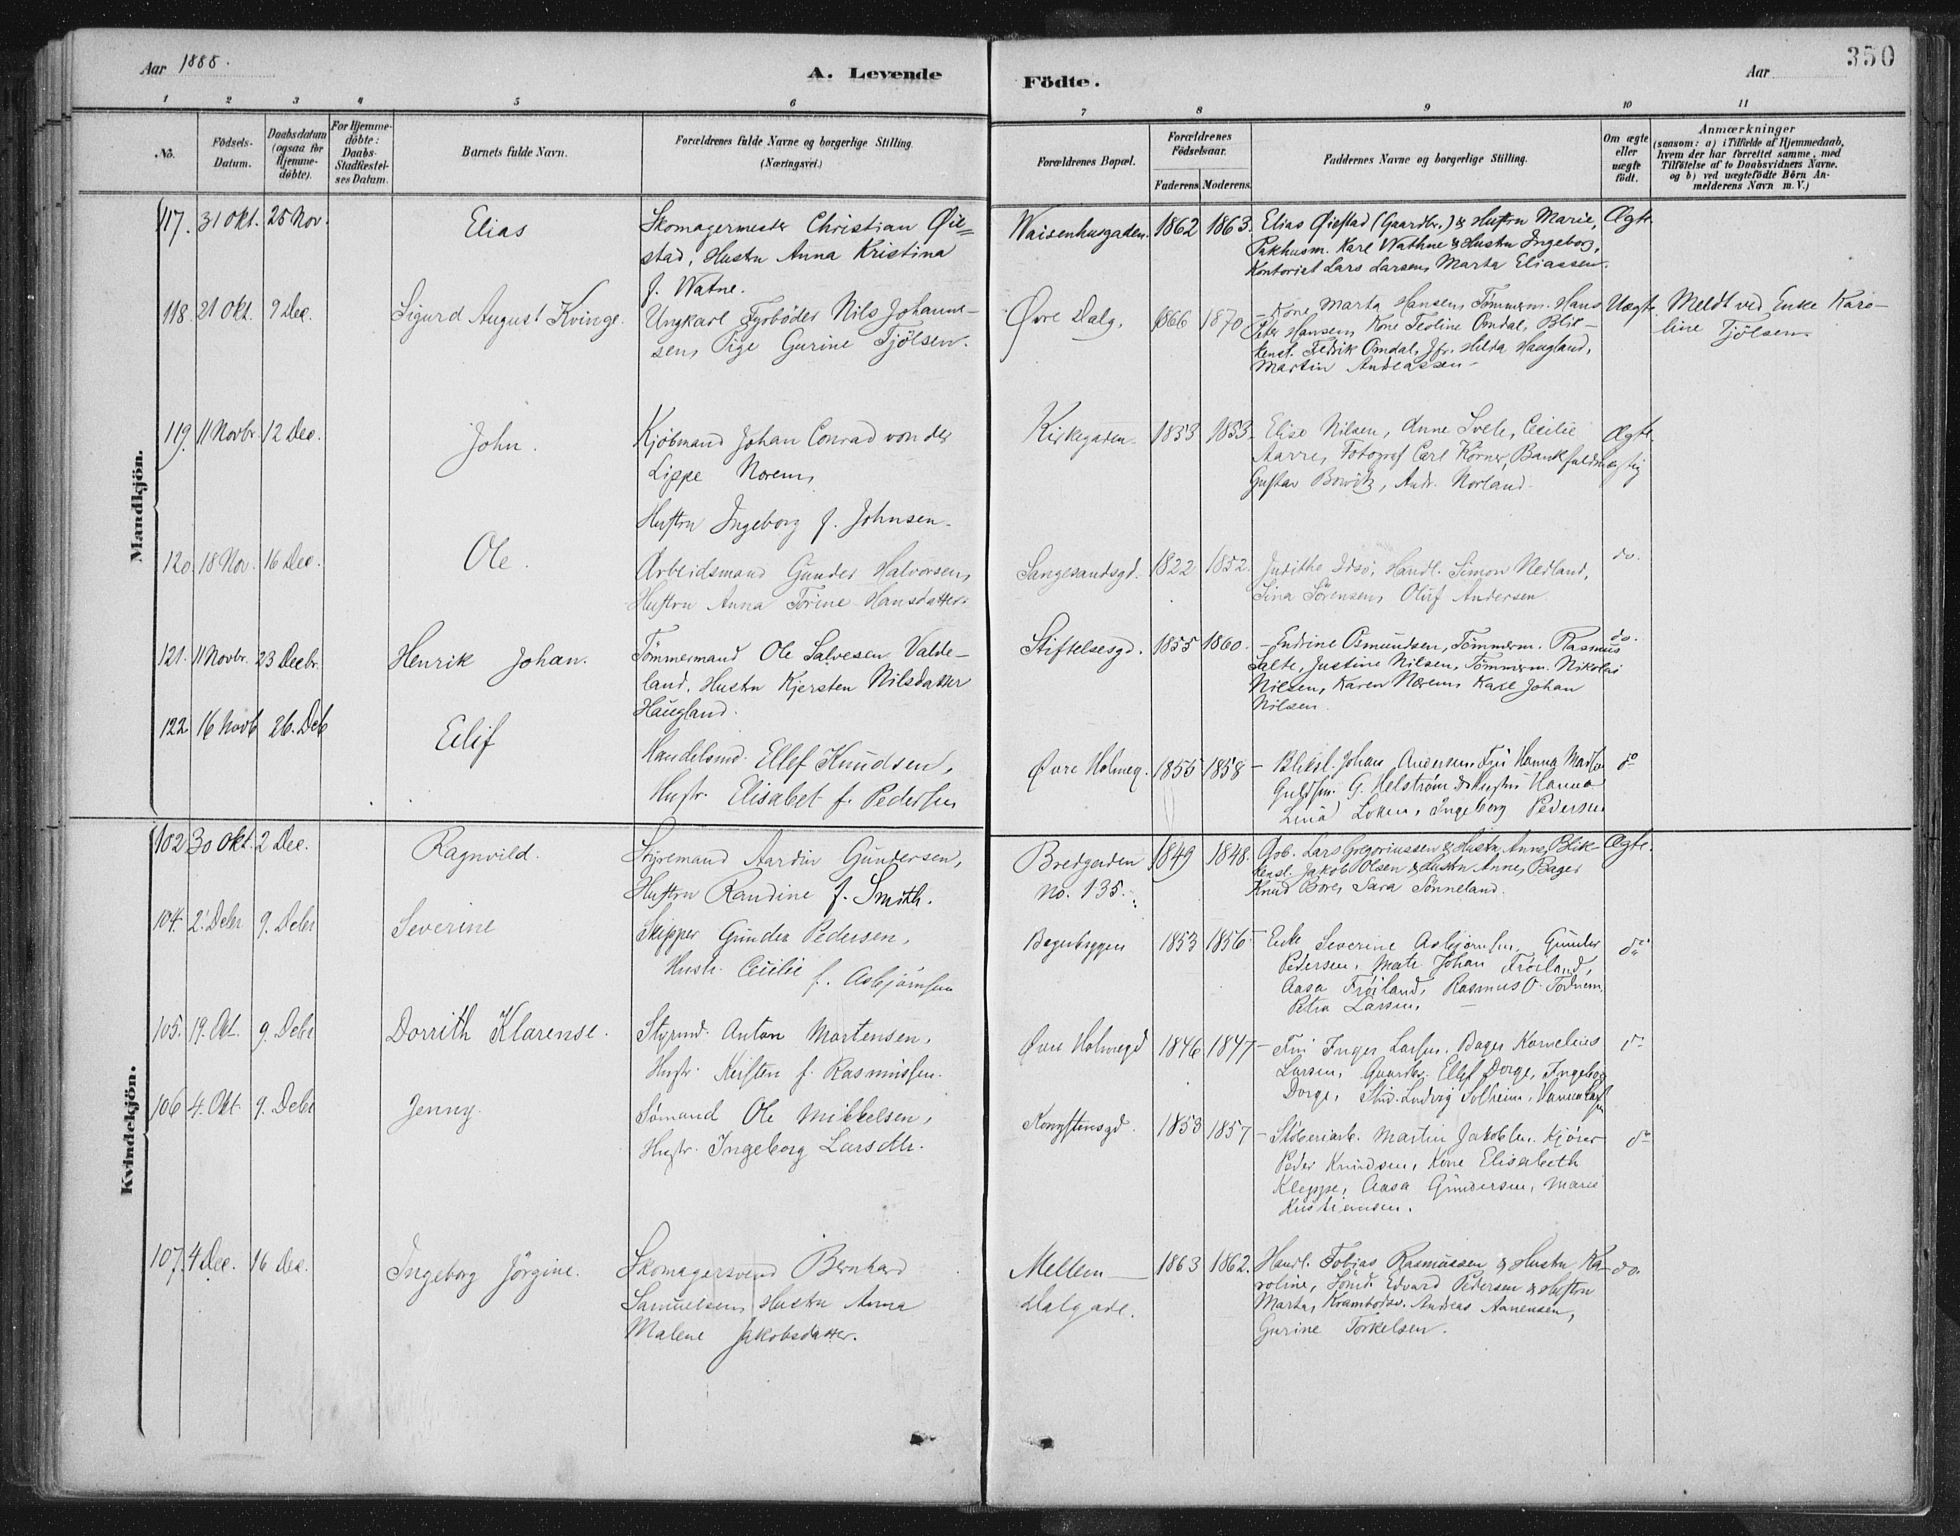 Aar 1888.
A. Levende
Födte.
Aar
350
1 2 3 4 5 6 7 8 9 10 11
No.
Födsels-
Datum.
Daabsdatum
(ogsaa för
Hjemme-
döbte).
For Hjemme-
döbte:
Daabs-
Stadfæstel-
ses Datum.
Barnets fulde Navn.
Forældrenes fulde Navne og borgerlige Stilling.
(Næringsvei.)
Forældrenes Bopæl.
Forældrenes
Födselsaar.
Faderens. Moderens.
Faddernes Navne og borgerlige Stilling.
Om ægte
eller
uægte
födt.
Anmærkninger
(saasom: a) i Tilfælde af Hjemmedaab,
hvem der har forrettet samme, med
Tilföielse af to Daabsvidners Navne.
og b) ved uægtefödte Börn An-
melderens Navn m. V.)
Mandkjön.
117. 31 Okt. 25 Nov. Elias
Skomagermester Christian Øie=
stad, Hustru Anna Kristina
f. Watne.
Waisenhusgaden. 1862 1863.
Elias Øiestad (Gaardbr.) & Hustru Marie,
Pakhusm. Karl Wathne & Hustru Ingeborg,
Kontorist Lars Larsen, Marta Eliassen.
Ægte
118. 21 Okt. 9 Dec. Sigurd August Kvinge.
Ungkarl Fyrbøder Nils Johanne-
sen, Pige Gurine Tjölsen.
Øvre Dalg. 1866 1870
Kone Marta Hansen, Tömmerm. Hans
Peter Hansen, Kone Teoline Omdal, Blik-
kensl. Fedrik Omdal, Jfr. Hilda Haugland,
Martin Andreassen
Uægte
Meldt ved Enke Karo-
line Tjölsen
119. 11 Novbr. 12 Dec. John.
Kjöbmand Johan Conrad von der
Lippe Norem,
Hustru Ingeborg f. Johnsen
Kirkegaden 1853 1853.
Elise Nilsen, Anne Svele, Cecilie
Aarre, Fotograf Carl Körner, Bankfuldmægtig
Gustav Bowitz, Andr. Norland
Ægte.
120. 18 Nov. 16 Dec. Ole.
Arbeidsmand Gunder Halvorsen,
Hustru Anna Torine Hansdatter
Langesandsgd. 1822 1852.
Judithe Idsö, Handl. Simon Nedland,
Sina Sörensen, Oluf Andersen
do.
121. 11 Novbr. 23 Decbr. Henrik Johan.
Tömmermand Ole Salvesen Valde-
land, Hustru Kjersten Nilsdatter
Haugland.
Stiftelsesgd. 1855 1860.
Endrine Osmundsen, Tömmerm. Rasmus
Salte, Justine Nilsen, Tömmerm. Nikolai
Nilsen, Karen Nærem, Karl Johan
Nilsen.
do.
122. 16 Novb 26. Deb Eilif
Handelsmd. Ellef Knudsen,
Hustr. Elisabet f. Pedersen
Øvre Holmeg. 1855 1858
Bliksl. Johan Andersen, Frú Hanna
Guldsm. G. Helström & Hustru Hanna
Lina Ingeborg Pedersen
do
Kvindekjön.
102 30 Okt. 2 Dec. Ragnvild.
Styremand Aardin Gundersen,
Hustru Randine f. Smith.
Bredgaden
No. 135. 1849 1848.
Arb. Lars Gregoriussen & Hustru Anne, Blik-
kensl. Jakob Olsen & Hustru Anne, Bager
Knud Bore, Sara Sönneland.
Ægte.
104. 2' Debr 9. Debr Severine
Skipper Gunder Pedersen,
Hustr. Cecilie
f. Asbjörnsen
Bagerbyggen 1853 1856
Enke Severine Asbjörnsen, Gunder
Pedersen, Matr. Johan Fröiland,
Aasa Fröiland, Rasmus O. Todnem
Petra Larsen.
do
105. 19. Okt 9 Debr Dorrith Klarense.
Styrmd. Anton Mortensen,
Hustr. Kirsten f. Rasmussen.
Øvre Holmegd 1846 1847
Frú Inger Larsen. Bager Kornelius
Larsen, Gaardbr. Ellef Dorge, Ingeborg
Dorge, Stud. Ludvig Solheim, Hanna
do
106 4. Okt 9. Debr Jenny.
Sömand Ole Mikkelsen,
Hustr. Ingeborg Larsdtr.
Kongstensgd. 1853 1857
Støberiarb. Martin Jakobsen. Kjörer
Peder Knudsen, Kone Elisabeth
Kleppe, Aasa Gundersen, Marie
Kristiansen.
do
107. 4 Dec. 16 Dec. Ingeborg Jörgine.
Skomagersvend Bernhard
Samuelsen, Hustru Anna
Malene Jakobsdatter.
Mellem
Dalgade. 1863 1862.
Handl. Tobias Rasmussen & Hustru Ka-
roline, Edvard Pedersen & Hustru
Marta, Krambodsv. Andreas Aanensen,
Gurine Torkelsen.
do.